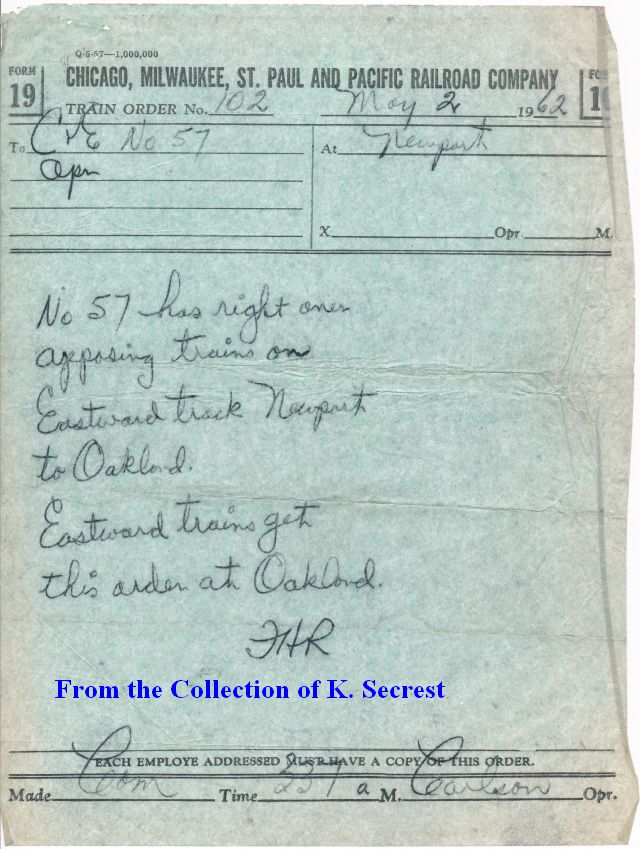 Q-5-57—1,000,000
FORM 19
CHICAGO, MILWAUKEE, ST. PAUL AND PACIFIC RAILROAD COMPANY
FO 19
TRAIN ORDER No. 102 May 2 1962
To C&E No 57 At Newport
Opr
X Opr. M.
No 57 has right over
opposing trains on
Eastward track Newport
to Oakland.
Eastward trains get
this order at Oakland.
FHR
From the Collection of K. Secrest
EACH EMPLOYE ADDRESSED MUST HAVE A COPY OF THIS ORDER.
Made Com Time 231 a M. Carlson Opr.